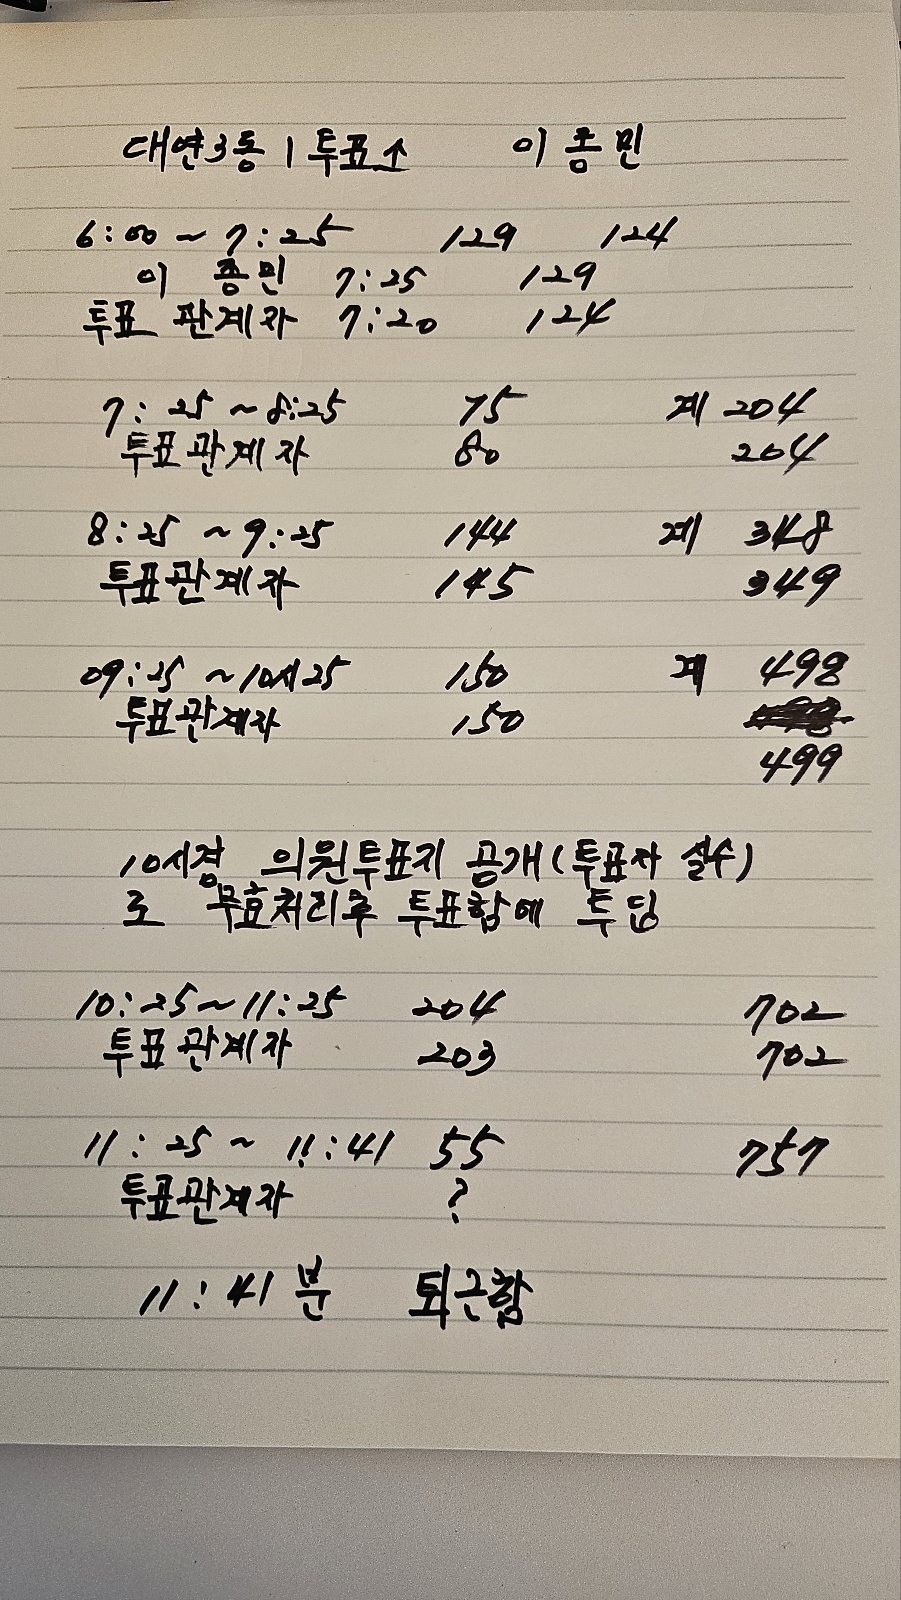 대연3동 1 투표소 이종민
6:00 ~ 7:25 129 124
이 종민 7:25 129
투표 관계자 7:20 124
7: 25 ~ 8:25 75 계 204
투표관계자 80 204
8:25 ~ 9:25 144 계 348
투표관계자 145 349
09:25 ~ 10시25 150 계 498
투표관계자 150
499
10시경 의원투표지 공개(투표자 실수)
로 무효처리후 투표함에 투입
10:25~11:25 204 702
투표관계자 203 702
11:25 ~ 11:41 55 757
투표관계자 ?
11:41분 퇴근함